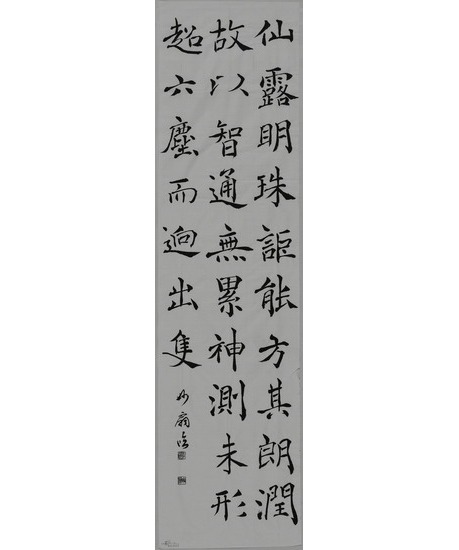 仙露明珠詎能方其朗潤
故以智通無累神測未形
超六塵而迥出隻